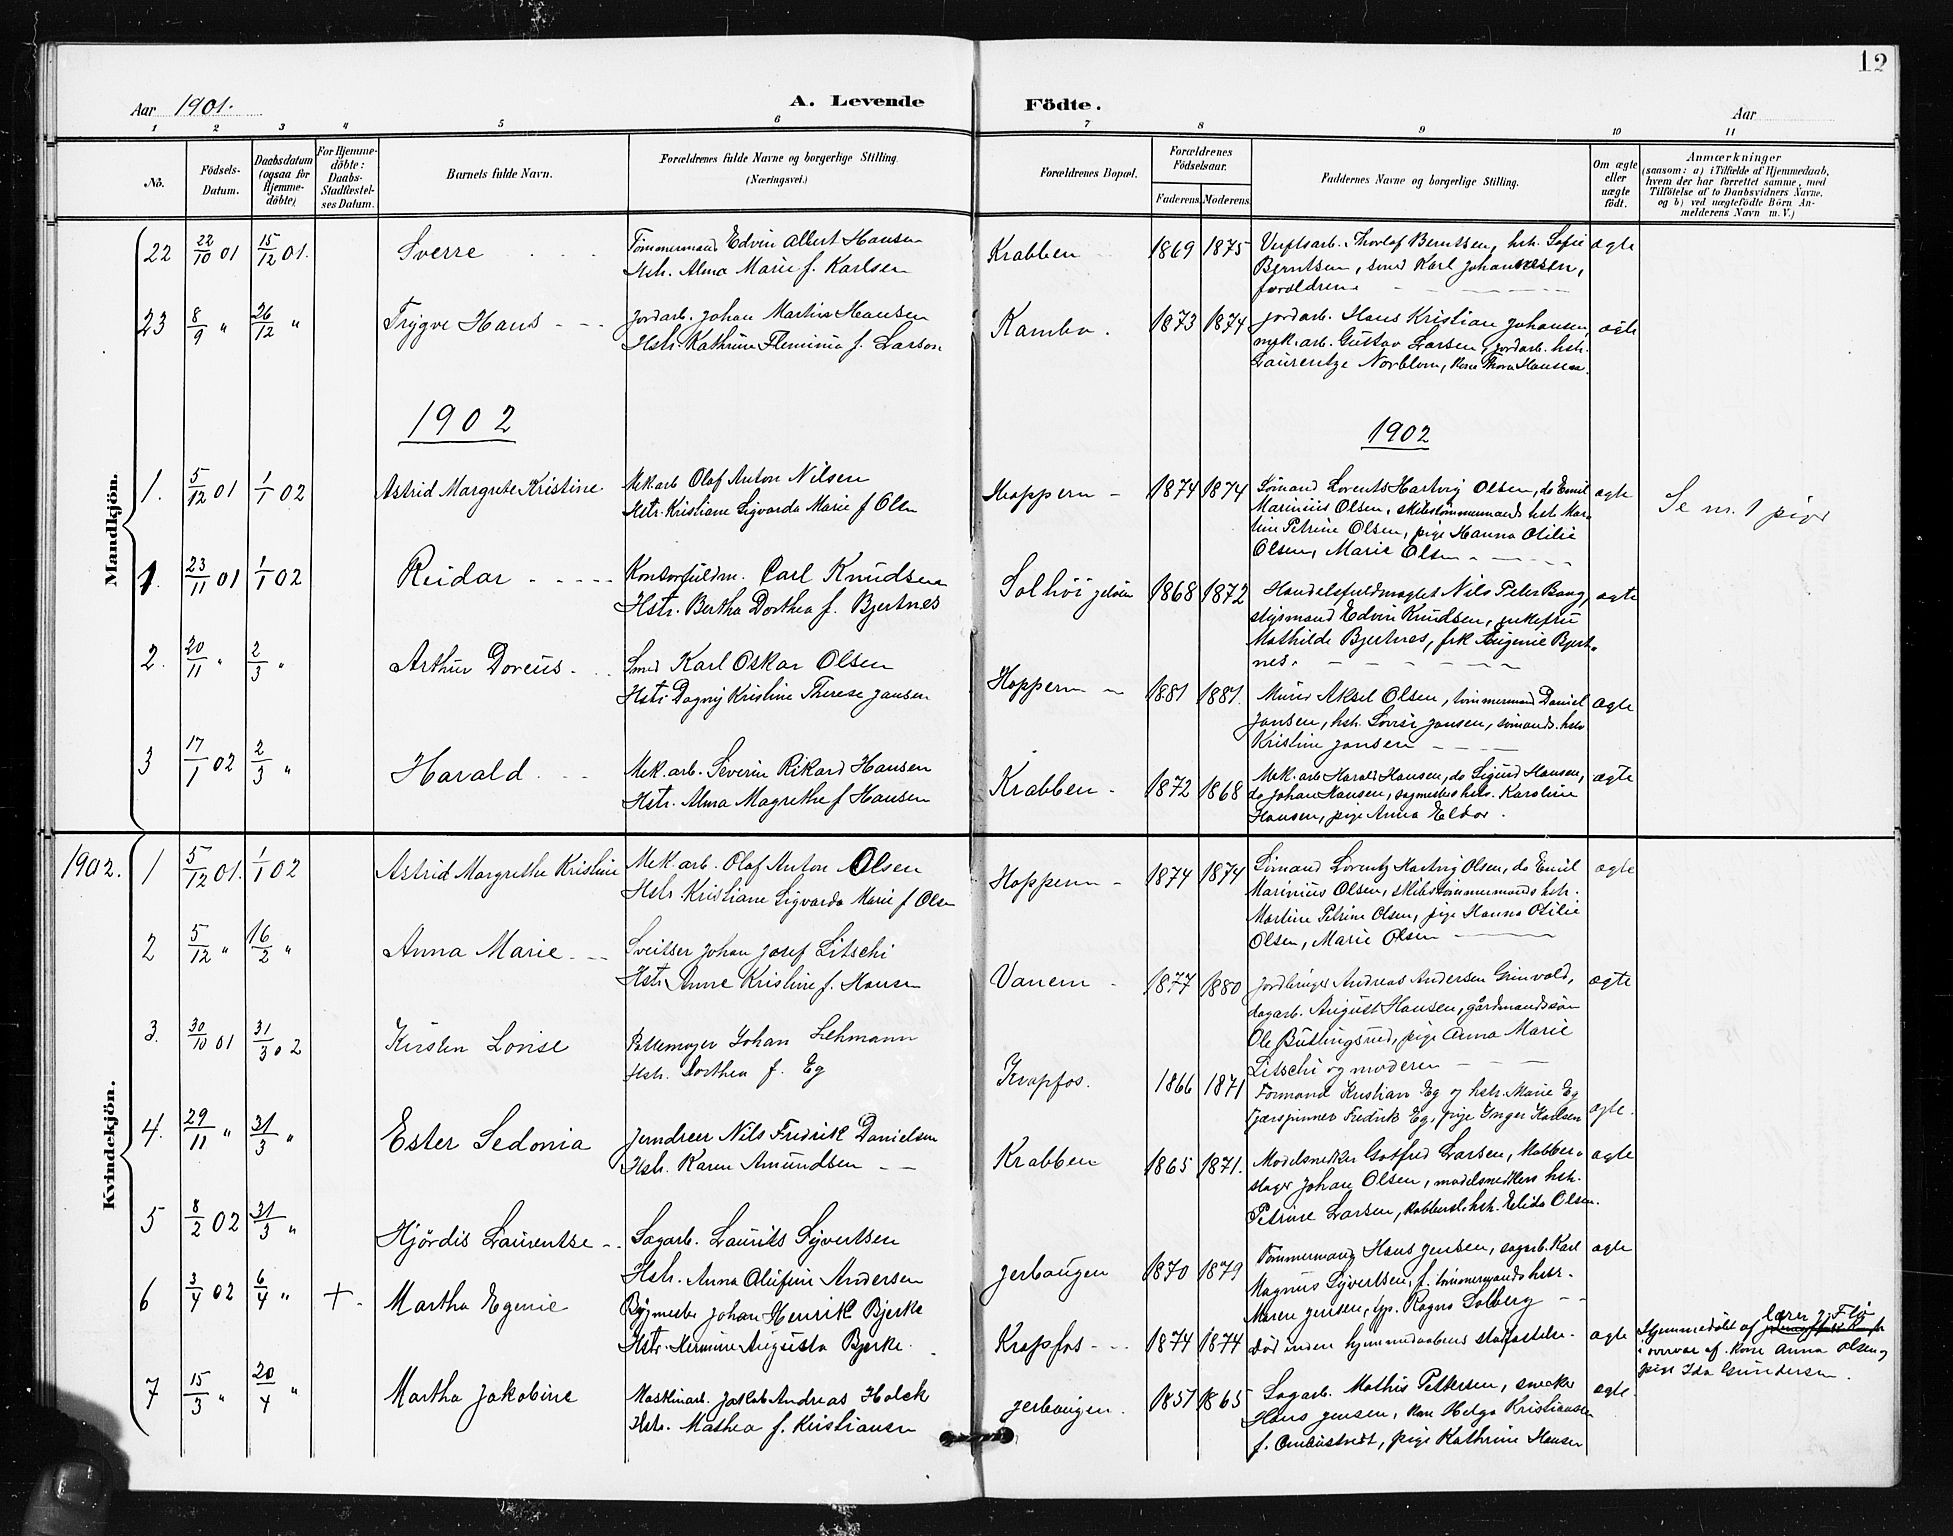 12
Aar 1901. A. Levende Födte. Aar
1 2 3 4 5 6 7 8 9 10 11
No. Födsels-Datum. Daabsdatum (ogsaa for Hjemme-döbte) For Hjemme-döbte: Daabs-Stadfæstel-ses Datum. Barnets fulde Navn. Forældrenes fulde Navne og borgerlige Stilling. (Næringsvei.) Forældrenes Bopæl. Forældrenes Födselsaar. Faderens Moderens Faddernes Navne og borgerlige Stilling. Om ægte eller uægte födt. Anmærkninger (saasom: a) i Tilfælde af Hjemmedaab, hvem der har forrettet samme, med Tilföielse af to Daabsvidners Navne, og b) ved uægtefödte Börn An-melderens Navn m. V.)
Mandkjön.
22 22/10 01 15/12 01. Sverre Tömmermand Edvin Albert Hansen Krabben 1869 1875 Verftsarb. Thorlof Berntsen, hst. Sofie ægte
Hstr. Alma Marie f. Karlsen Berntsen, smed Karl Johannesen,
forældrene
23 8/9 " 26/12 " Trygve Hans Jordarb. Johan Martin Hansen Kambo. 1873 1874 Jordarb. Hans Kristian Johansen, ægte
Hstr. Kathrine Fleminia f. Larson mek. arb. Gustav Larsen, jordarb. hst.
Laurentze Norblom, kone Thora Hansen.
1902 1902
1. 5/12 01 1/1 02 Astrid Margrete Kristine Mek.arb Olaf Anton Nilsen Hoppern 1874 1874 Sömand Lorents Hartvig Olsen, do Emil ægte Se nr. 1 piger
Hstr. Kristiane Sigvarda Marie f Olsen Marinius Olsen, skibstömmermands hst. Mar-
tine Petrine Olsen, pige Hanna Otilie
Olsen, Marie Olsen
1. 23/11 01 1/1 02 Reidar Kontorfuldm. Carl Knudsen Solhöi jelöen 1868 1872 Handelsfuldmægtet Nils Peter Bang, ægte
Hstr. Bertha Dorthea f. Bjertnes stysmand Edvin Knudsen, enkefru
Mathilde Bjertnes, frk Eugenie Bjert-
nes.
2. 20/11 " 2/3 " Arthur Doreus Smed Karl Oskar Olsen Hoppern 1881 1881. Murer Aksel Olsen, tömmermand Daniel ægte
Hstr Dagny Kristine Therese Jansen Jansen, hst. Lovise Jansen, sömands hstr
Kristine Jansen
3 17/1 02 2/3 " Harald Mek. arb. Severin Rikard Hansen Krabben 1872 1868 Mek. arb Harald Hansen, do Sigurd Hansen, ægte
Hstr. Alma Magrethe f Hansen do Johan Hansen, sagmesters hstr. Karoline
Hansen, pige Anna Eldor.
Kvindekjön.
1902. 1 5/12 01. 1/1 02 Astrid Margrethe Kristine Mek. arb. Olaf Anton Olsen Hoppern 1874 1874 Sömand Lorentz Hartvig Olsen, do Emil ægte
Hstr. Kristiane Sigvarda Marie f Olsen Marinius Olsen, skibstömmermands hstr.
Martine Petrine Olsen, pige Hanna Otilie
Olsen, Marie Olsen
2 5/12 " 16/2 " Anna Marie Sveitser Johan Josef Litschi Vanem 1877 1880 Jordbruger Andreas Andersen Grimvold, ægte
Hstr Anne Kristine f. Hansen dagarb. August Hansen, gårdmandssön
Ole Butlingsrud, pige Anna Marie
Litschi og moderen
3. 30/10 01 31/3 02 Kirsten Lovise Pottemager Johan Lehmann Krapfos. 1866 1871 Formand Kristian Eg og hstr. Marie Eg
Hstr. Dorthea f. Eg Fjærspinner Fredrik Eg, pige Ynger Karlsen ægte.
4. 29/11 " 31/3 " Ester Sedonia Jerndreer Nils Fredrik Danielsen Krabben 1865 1871. Modelsnedker Gotfred Larsen, Kobber- ægte
Hstr. Karen Amundsen slager Johan Olsen, modelsnedkers hst.
Petrine Larsen, kobbersl. hst. Elida Olsen.
5 8/2 02 31/3 " Hjördis Laurentse Sagarb. Laurits Syvertsen Jerbaugen 1870 1879 Tömmermand Hans Jensen, sagarb. Karl ægte
Hstr. Anna Olufine Andersen Magnus Syvertsen, f. tömmermands hstr.
Maren Jensen, pp. Ragna Solberg
6 3/4 02 6/4 " + Martha Egenie Bygmester Johan Henrik Bjerke Krapfos 1874 1874 Död inden hjemmedaabens stadfæstelse. ægte Hjemmedöbt af lærer J. Flö
Hstr. Hermine Augusta Bjerke. i overvær af Kone Anna Olsen og
pige Ida Gundersen.
7 15/3 " 20/4 " Martha Jakobine Maskinarb. Jakob Andreas Holck Jerbaugen. 1857 1865 Sagarb. Mathis Pettersen, snedker ægte
Hstr. Mathea f. Kristiansen Hans Jensen, kone Helga Kristiansen
f. Ombustvedt, pige Kathrine Hansen